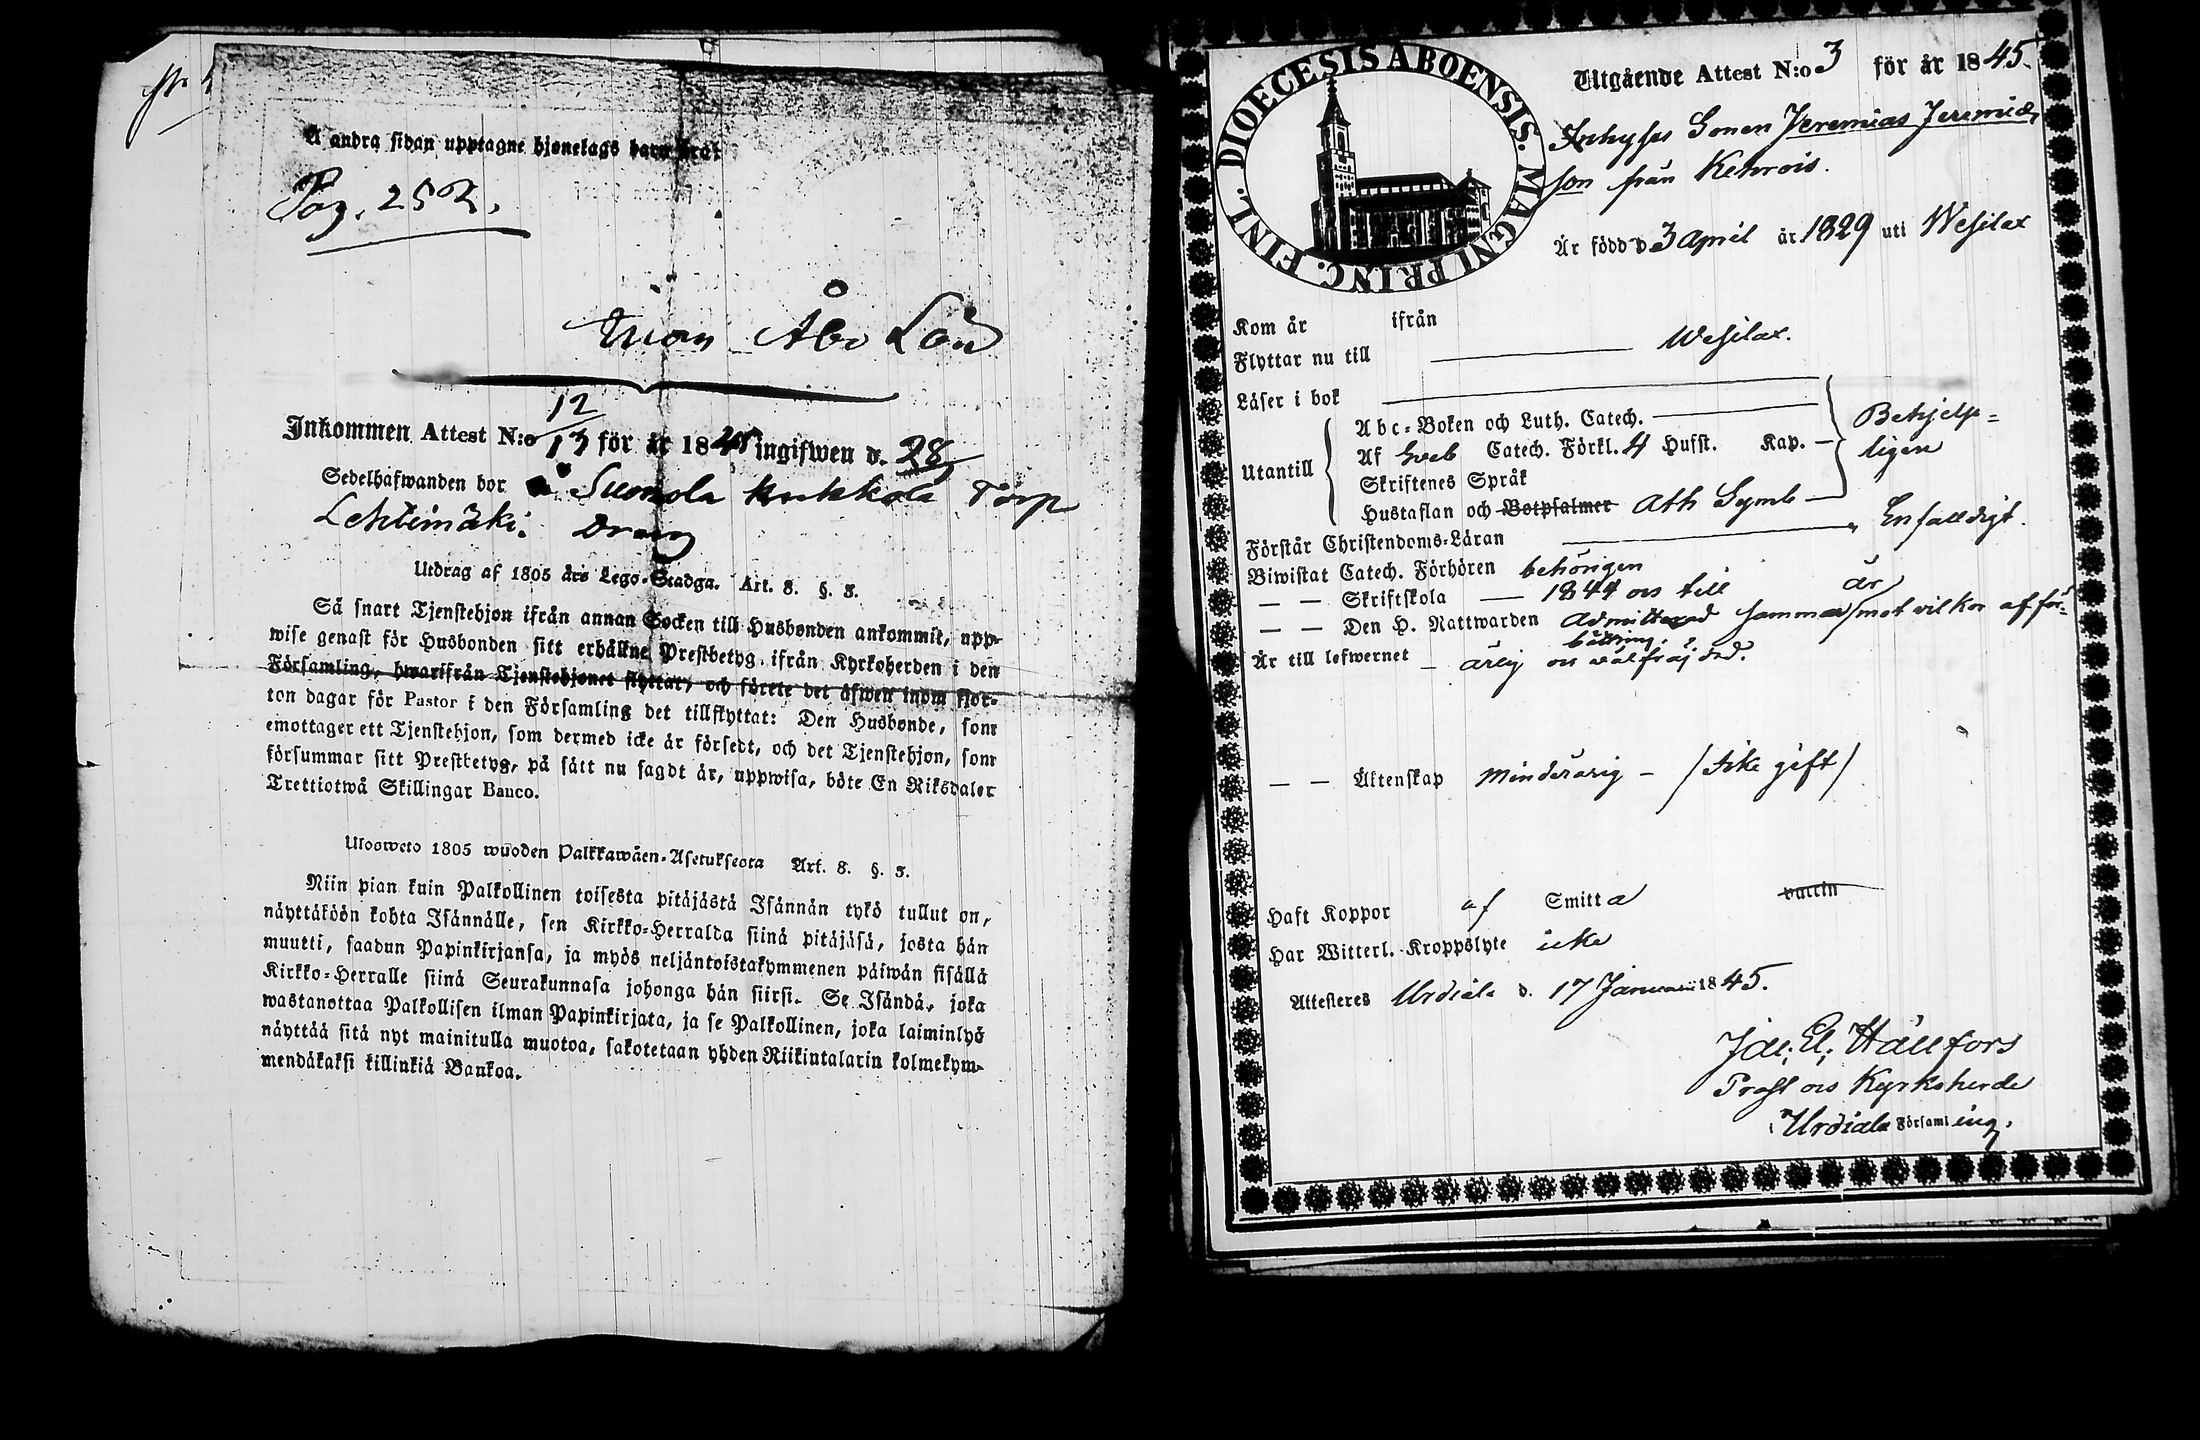 Å andra sidan upptagne hjonelags barn äro:
Pag. 252.
inom Åbo Län
12
Inkommen Attest N:o 13 för år 1845 ingifwen d. 28
Sedelhafwanden bor å Suomola Kukkola Torp
Lehtimäki. Dräng
Utdrag af 1805 års Lego-Stadga. Art. 8. §. 3.
Så snart Tjenstehjon ifrån annan Socken till Husbonden ankommit, upp-
wise genast för Husbonden sitt erhållne Prestbetyg ifrån Kyrkoherden i den
Församling, hwarifrån Tjenstehjonet flyttat, och förete det äfwen inom fjor-
ton dagar för Pastor i den Församling det tillflyttat: Den Husbonde, som
emottager ett Tjenstehjon, som dermed icke är försedt, och det Tjenstehjon, som
försummar sitt Prestbetyg, på sätt nu sagdt är, uppwisa, böte En Riksdaler
Trettiotwå Skillingar Banco.
Ulosweto 1805 wuoden Palkkawäen-Asetuksesta Art. 8. §. 3.
Niin pian kuin Palkollinen toisesta pitäjästä Isännän tykö tullut on,
näyttäköön kohta Isännälle, sen Kirkko-Herralda siinä pitäjäsä, josta hän
muutti, saadun Papinkirjansa, ja myös neljäntoistakymmenen päiwän sisällä
Kirkko-Herralle siinä Seurakunnasa johonga hän siirsi. Se Isändä, joka
wastanottaa Palkollisen ilman Papinkirjata, ja se Palkollinen, joka laiminlyö
näyttää sitä nyt mainitulla muotoa, sakotetaan yhden Riikintalarin kolmekym-
mendäkaksi killinkiä Bankoa.
DIOECESIS ABOENSIS. MAGNI PRINC. FINL.
Utgående Attest N:o 3 för år 1845.
Inhyses Sonen Jeremias Jeremiæ
son från Kehrois.
Är född d 3 April år 1829 uti Wesilax
Kom år ifrån
Flyttar nu till Wesilax.
Läser i bok
Abc-Boken och Luth. Catech.
Utantill Af Sveb Catech. Förkl. 4 Hufst. Kap. Behjelp=
ligen
Skriftenes Språk
Hustaflan och Botpsalmer Ath Symb
Förstår Christendoms-Läran Enfalldigt.
Biwistat Catech. Förhören behörigen
— — Skriftskola 1844 och till år
— — Den H. Nattwarden Admitterad samma mot vilkor af för-
bättring.
Är till lefwernet ärlig och välfräjdad.
— — Äktenskap Minderårig - / Icke gift /
Haft Koppor af Smitta vaccin
Har Witterl. Kroppslyte icke
Attesteres Urdiala d. 17 Januarii 1845.
Jac. El. Hällfors
Prost och Kyrkoherde
i Urdiala Församling.